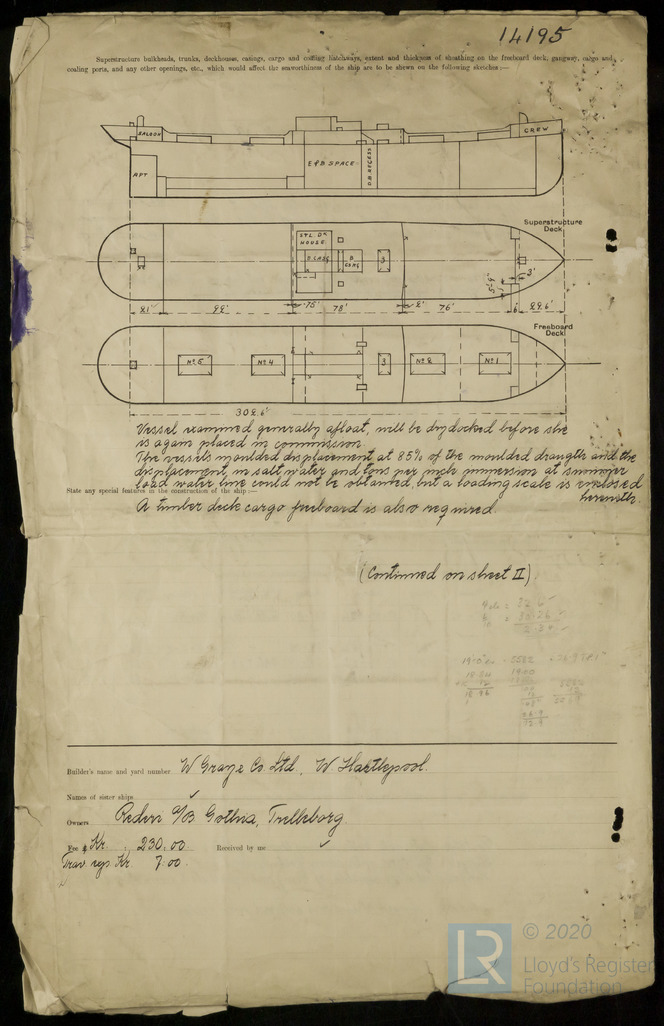 14195
Superstructure bulkheads, trunks, deckhouses, casings, cargo and coaling hatchways, extent and thickness of sheathing on the freeboard deck, gangway, cargo and
coaling ports, and any other openings, etc., which would affect the seaworthiness of the ship are to be shewn on the following sketches:—
SALOON
CREW
APT
E&B SPACE
O.B. RECESS
Superstructure
Deck
STL. DK
HOUSE.
B. CASG
3
3'
21'
92'
.75'
78'
2'
76'
6'
29.6'
Freeboard
Deck
No 5
No 4
3
No 2
No 1
302.6'
Vessel examined generally afloat, will be drydocked before she
is again placed in commission.
The vessels moulded displacement at 85% of the moulded draught and the
displacement in salt water and tons per inch immersion at summer
load water line could not be obtained, but a loading scale is enclosed
herewith.
State any special features in the construction of the ship:—
A timber deck cargo freeboard is also required.
(Continued on sheet II)
Builder's name and yard number W Graye Co Ltd., W Hartlepool.
Names of sister ships
Owners Rederi A/B Gothia, Trelleborg.
Fee £ Kr. : 230.00 Received by me
Trav. exps. Kr. 7.00
LR
© 2020
Lloyd's Register
Foundation